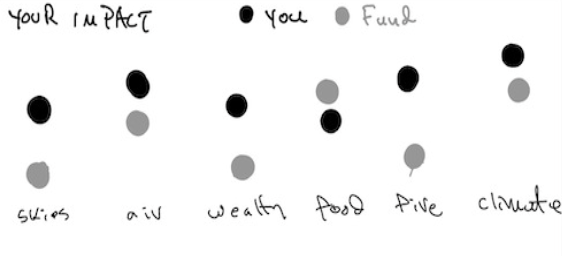 YOUR IMPACT
You
Fund
skies air wealth food fire climate